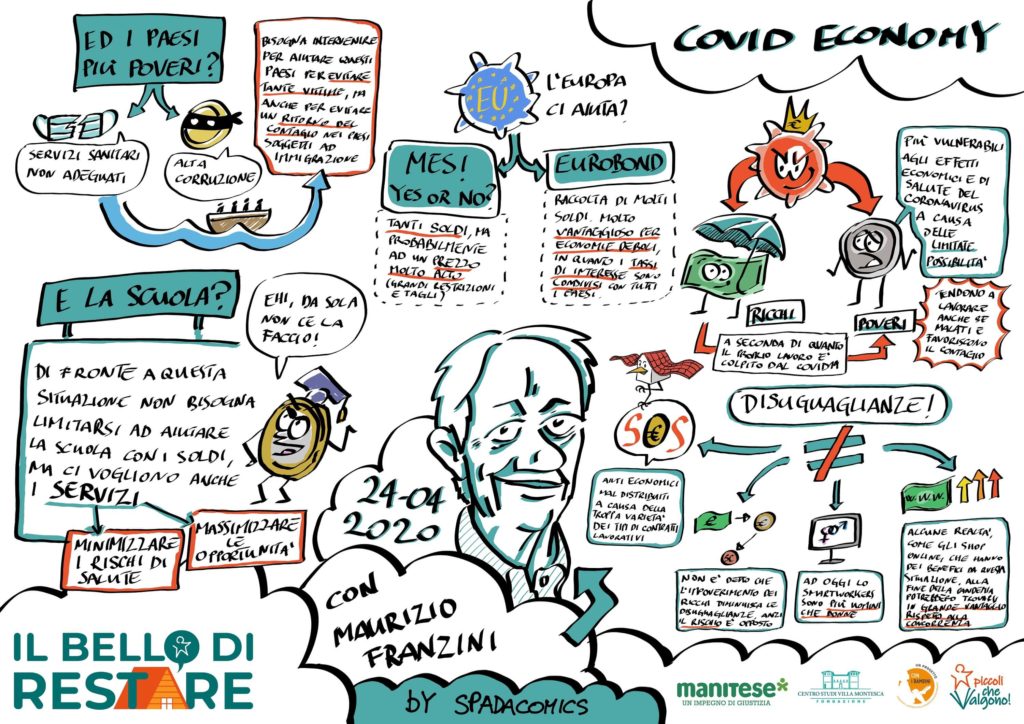 COVID ECONOMY
ED I PAESI
PIÙ POVERI?
SERVIZI SANITARI
NON ADEGUATI
ALTA
CORRUZIONE
BISOGNA INTERVENIRE
PER AIUTARE QUESTI
PAESI PER EVITARE
TANTE VITTIME, MA
ANCHE PER EVITARE
UN RITORNO DEL
CONTAGIO NEI PAESI
SOGGETTI AD
IMMIGRAZIONE
EU
L'EUROPA
CI AIUTA?
MES!
YES OR NO?
TANTI SOLDI, MA
PROBABILMENTE
AD UN PREZZO
MOLTO ALTO
(GRANDI RESTRIZIONI
E TAGLI)
EUROBOND
RACCOLTA DI MOLTI
SOLDI. MOLTO
VANTAGGIOSO PER
ECONOMIE DEBOLI,
IN QUANTO I TASSI
DI INTERESSE SONO
CONDIVISI CON TUTTI
I PAESI.
€
PIU' VULNERABILI
AGLI EFFETTI
ECONOMICI E DI
SALUTE DEL
CORONAVIRUS
A CAUSA
DELLE
LIMITATE
POSSIBILITA'
RICCHI
POVERI
A SECONDA DI QUANTO
IL PROPRIO LAVORO E'
COLPITO DAL COVID19
TENDONO A
LAVORARE
ANCHE SE
MALATI E
FAVORISCONO
IL CONTAGIO
E LA SCUOLA?
EHI, DA SOLA
NON CE LA
FACCIO!
DI FRONTE A QUESTA
SITUAZIONE NON BISOGNA
LIMITARSI AD AIUTARE
LA SCUOLA CON I SOLDI,
MA CI VOGLIONO ANCHE
I SERVIZI
MINIMIZZARE
I RISCHI DI
SALUTE
MASSIMIZZARE
LE
OPPORTUNITA'
24-04
2020
CON
MAURIZIO
FRANZINI
BY SPADACOMICS
DISUGUAGLIANZE!
S€S
AIUTI ECONOMICI
MAL DISTRIBUITI
A CAUSA DELLA
TROPPA VARIETA'
DEI TIPI DI CONTRATTI
LAVORATIVI
€
NON E' DETTO CHE
L'IMPOVERIMENTO DEI
RICCHI DIMINUISCA LE
DISUGUAGLIANZE, ANZI
IL RISCHIO E' OPPOSTO
AD OGGI LO
SMARTWORKERS
SONO PIU' UOMINI
CHE DONNE
W.W.W.
ALCUNE REALTA',
COME GLI SHOP
ONLINE, CHE HANNO
DEI BENEFICI DA QUESTA
SITUAZIONE, ALLA
FINE DELLA PANDEMIA
POTREBBERO TROVARSI
IN GRANDE VANTAGGIO
RISPETTO ALLA
CONCORRENZA
IL BELLO DI
RESTARE
manitese*
UN IMPEGNO DI GIUSTIZIA
CENTRO STUDI VILLA MONTESCA
FONDAZIONE
CON I BAMBINI
piccoli
che
Valgono!